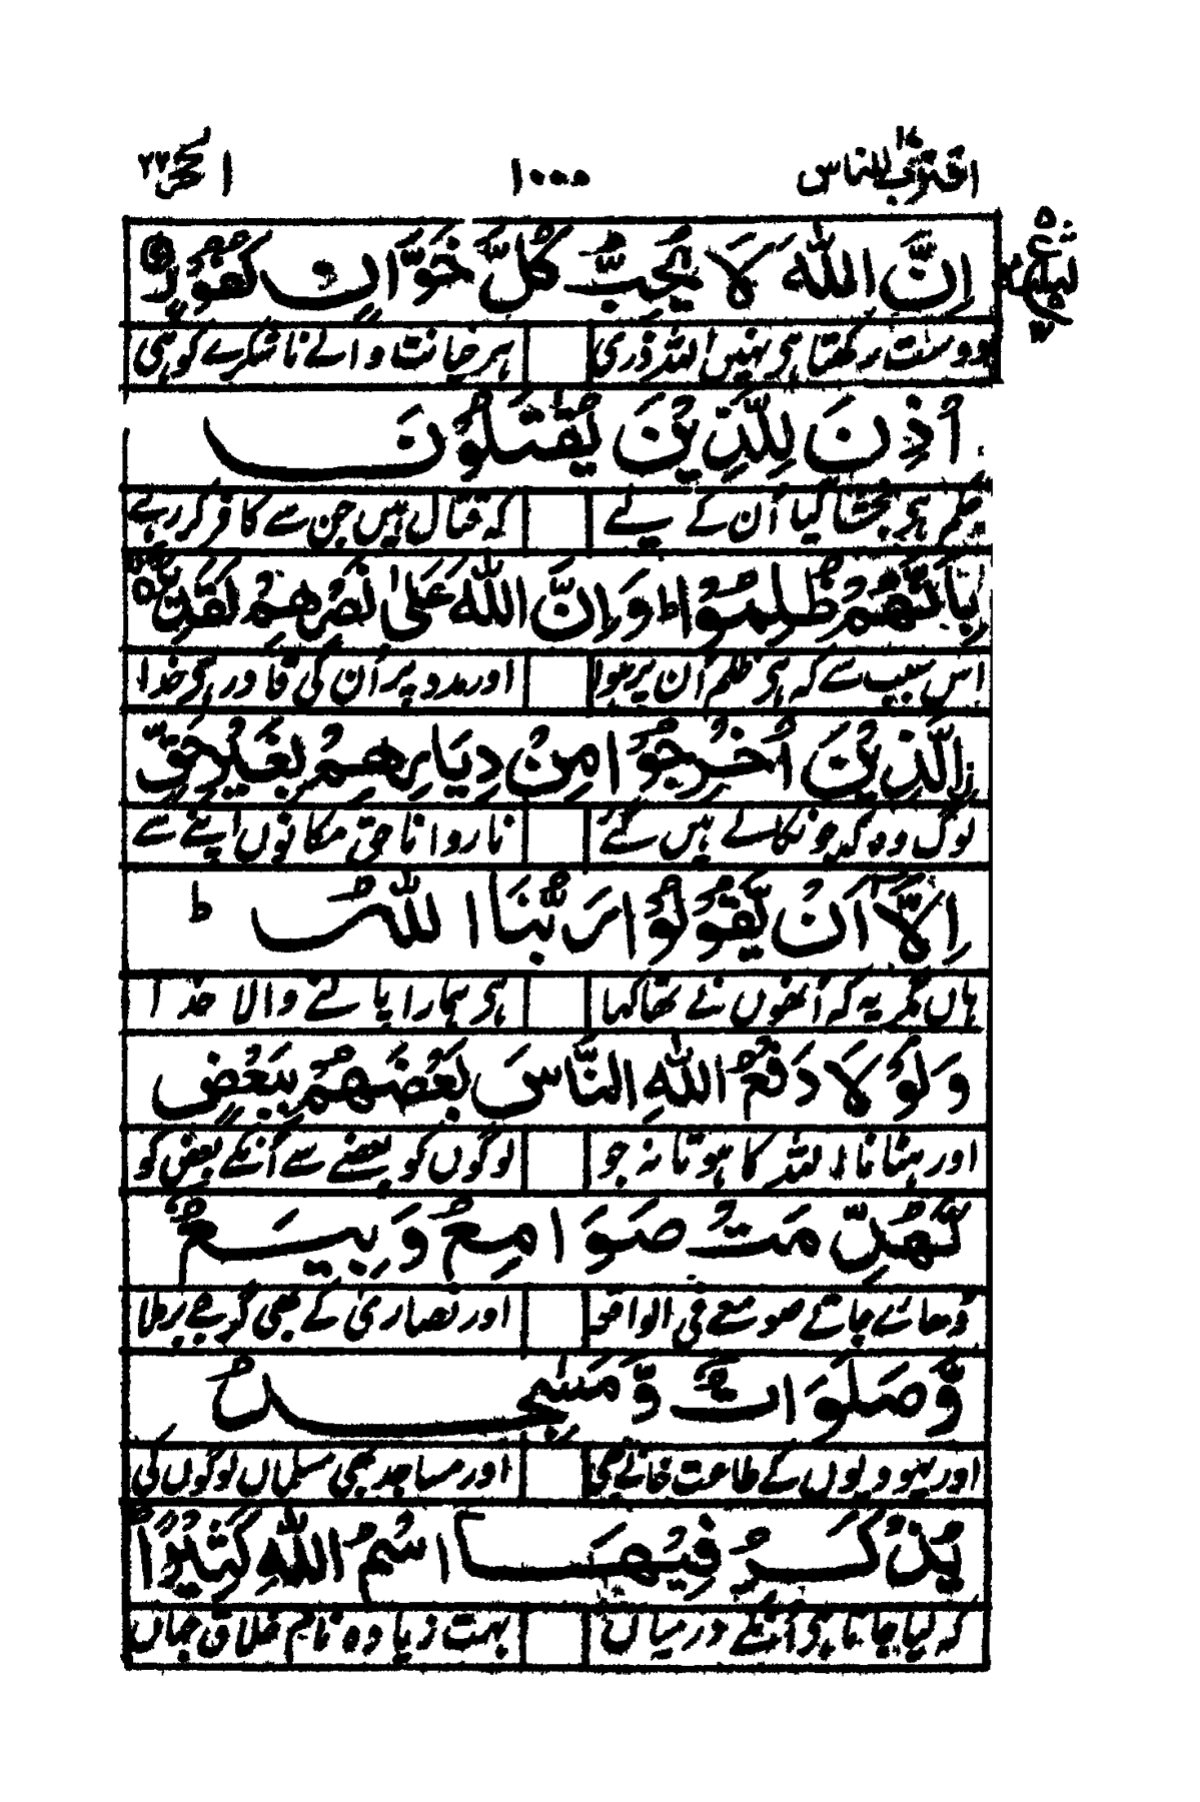 اقترب للناس ١٧ ١٠٠٥ الحج ٢٢
إِنَّ اللّٰهَ لَا يُحِبُّ كُلَّ خَوَّانٍ كَفُوْرٍ
دوست رکھتا ہی نہیں اللہ ذری ہر خیانت والے ناشکرے کو ہی
اُذِنَ لِلَّذِيْنَ يُقٰتَلُوْنَ
حکم ہی بخشا گیا اُن کے لیے کہ قتال ہیں جن سے کافر کر رہے
بِاَنَّهُمْ ظُلِمُوْا ط وَاِنَّ اللّٰهَ عَلٰى نَصْرِهِمْ لَقَدِيْرٌ
اِس سبب سے کہ ہی ظلم اُن پر ہوا اور مدد پر اُن کی قادر ہی خدا
الَّذِيْنَ اُخْرِجُوْا مِنْ دِيَارِهِمْ بِغَيْرِ حَقٍّ
لوگ وہ کہ جو نکالے ہیں گئے ناروا ناحق مکانوں اپنے سے
اِلَّآ اَنْ يَّقُوْلُوْا رَبُّنَا اللّٰهُ ط
ہاں مگر یہ کہ اُنھوں نے تھا کہا ہی ہمارا پالنے والا خدا
وَلَوْ لَا دَفْعُ اللّٰهِ النَّاسَ بَعْضَهُمْ بِبَعْضٍ
اور ہٹانا اللہ کا ہوتا نہ جو لوگوں کو بعضے سے اُنکے بعض کو
لَّهُدِّمَتْ صَوَامِعُ وَبِيَعٌ
ڈھائے جاتے صومعے فی الواقعہ اور نصاریٰ کے بھی گرجے برملا
وَّصَلَوَاتٌ وَّمَسٰجِدُ
اور یہودیوں کے طاعت خانے بھی اور مساجد بھی مسلماں لوگوں کی
يُذْكَرُ فِيْهَا اسْمُ اللّٰهِ كَثِيْرًا ط
کہ لیا جاتا ہی اُنکے درمیاں بہت زیادہ نام خلاق جہاں